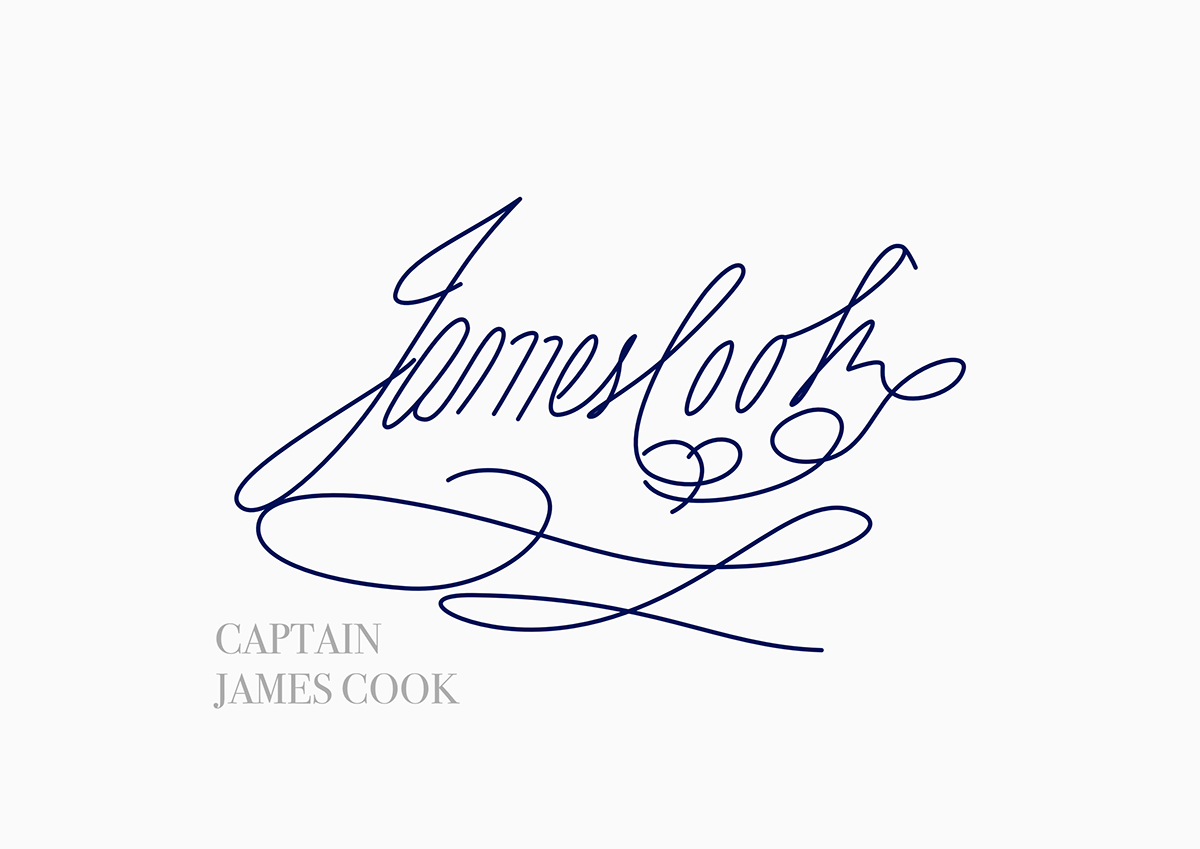 James Cook
CAPTAIN
JAMES COOK